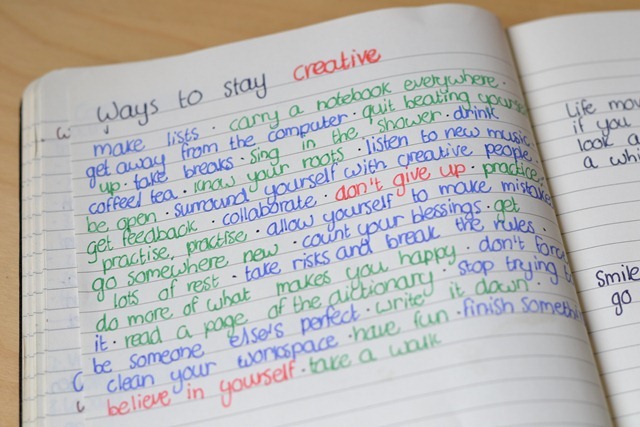 Ways to stay creative
make lists · carry a notebook everywhere ·
get away from the computer · quit beating yourself
up · take breaks · sing in the shower · drink
coffee/tea · know your roots · listen to new music
be open · surround yourself with creative people ·
get feedback · collaborate · don't give up · practice,
practise, practise · allow yourself to make mistakes
go somewhere new · count your blessings · get
lots of rest · take risks and break the rules ·
do more of what makes you happy · don't
it · read a page of the dictionary · stop trying
be someone else's perfect · write it down ·
clean your workspace · have fun · finish
believe in yourself · take a walk
Life
if you
look a
a
Smile
go